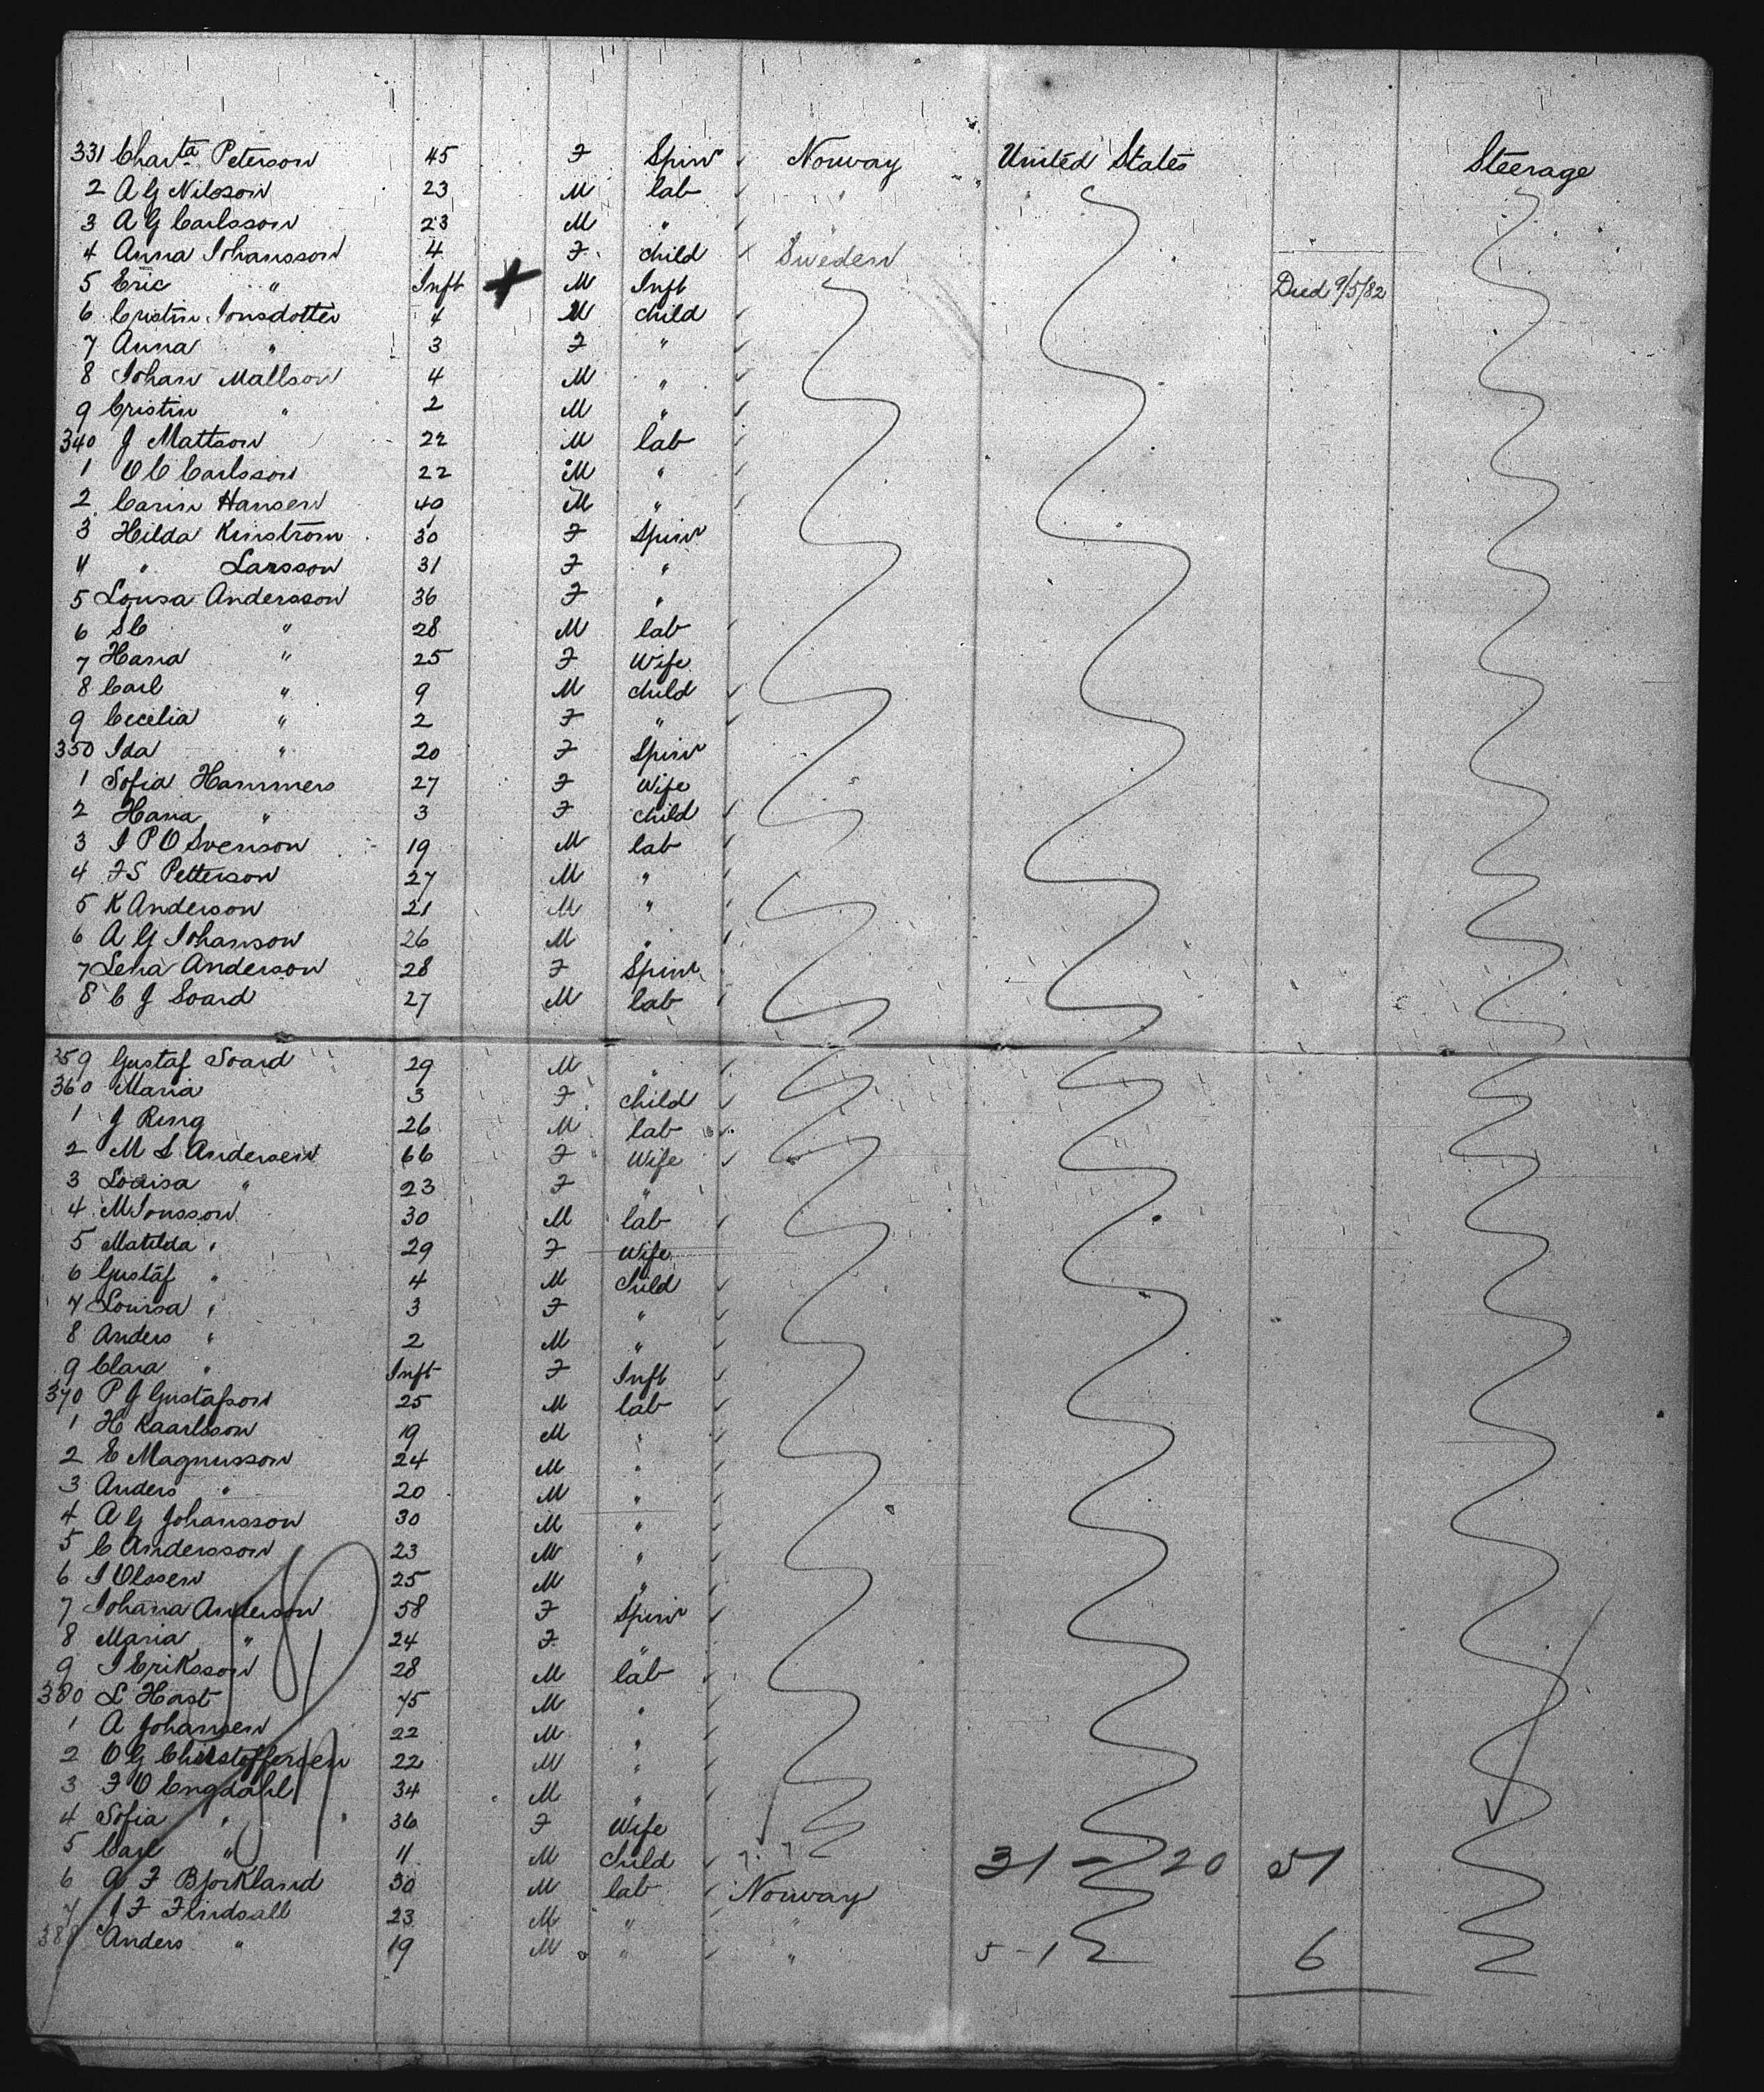 331 Charta Peterson 45 F Spin Norway United States Steerage
2 A G Nilsson 23 M lab "
3 A G Carlsson 23 M "
4 Anna Johansson 4 F child Sweden
5 Eric " Inft M Inft Died 9/5/82
6 Cristin Jonsdotter 4 M child
7 Anna " 3 F "
8 Johan Mallson 4 M "
9 Cristin " 2 M "
340 J Mattson 22 M lab
1 O C Carlsson 22 M "
2 Carin Hansen 40 M "
3 Hilda Kinstrom 30 F Spin
4 " Larsson 31 F "
5 Lousa Andersson 36 F "
6 S C " 28 M lab
7 Hana " 25 F Wife
8 Carl " 9 M child
9 Cecelia " 2 F "
350 Ida " 20 F Spin
1 Sofia Hammers 27 F Wife
2 Hana " 3 F child
3 J P O Svenson 19 M lab
4 F S Petterson 27 M "
5 K Anderson 21 M "
6 A G Johanson 26 M "
7 Lena Anderson 28 F Spin
8 C J Soard 27 M lab
359 Gustaf Soard 29 M "
360 Maria 3 F child
1 J Ring 26 M lab
2 M L Andersen 66 F Wife
3 Louisa " 23 F "
4 M Jonsson 30 M lab
5 Matilda " 29 F Wife
6 Gustaf " 4 M Child
7 Loursa " 3 F "
8 Anders " 2 M "
9 Clara " Inft F Inft
370 P J Gustafson 25 M lab
1 H Kaarlsson 19 M "
2 E Magnusson 24 M "
3 Anders " 20 M "
4 A G Johansson 30 M "
5 C Andersson 23 M "
6 J Olssen 25 M "
7 Johana Anderson 58 F Spin
8 Maria " 24 F "
9 J Eriksson 28 M lab
380 L Hast 45 M "
1 A Johansen 22 M "
2 O G Christoffersen 22 M "
3 F O Engdahl 34 M "
4 Sofia " 36 F Wife
5 Carl " 11 M Child 31 - 20 51
6 A F Bjorkland 30 M lab Norway
7 J F Flindsall 23 M " "
388 Anders " 19 M " " 5 - 1 6